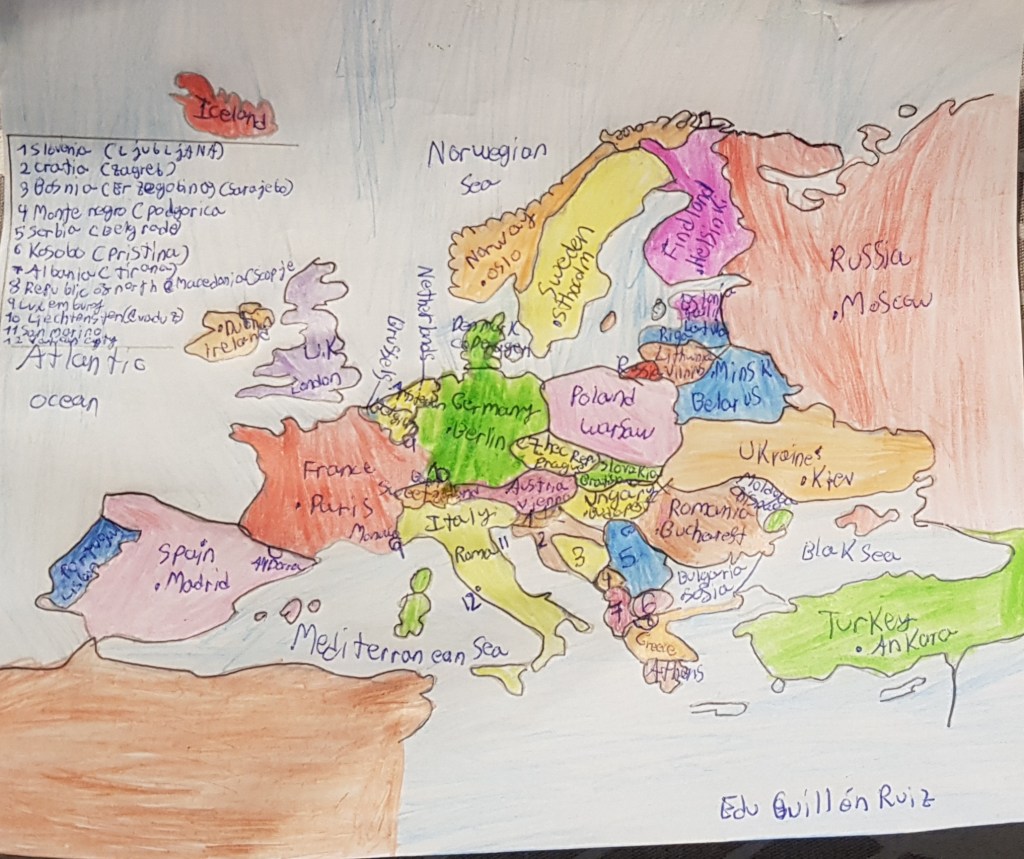 Iceland
1 Slovenia (LjubLjANA)
2 Cratia (Zagreb)
3 Bosnia (Erzegobina) (Sarajebo)
4 Monte negro (podgorica
5 Serbia (Belgrade)
6 Kosobo (pristina)
7 Albania (tirana)
8 Republic of north Macedonia (Scopje
9 Luxemburg
10 Liechtensten (vaduz)
11 San marino
12
Atlantic
ocean
Norwegian
Sea
Norway
Oslo
Sweden
Sthocolm
Findland
Helsinki
Russia
Moscow
Estonia
Riga
Lithunia
Vilnis
Minsk
Belarus
Dublin
Ireland
U.K
London
Netherlands
Brussels
Denmark
Germany
Berlin
Poland
Warsaw
Czhec Rep
Prague
Slovakia
Ukraine
Kiev
France
Paris
Austria
Vienna
Ungary
Romania
Bucharest
Italy
Roma
11
12
9
10
1
2
3
4
5
6
7
8
Spain
Madrid
Portugal
Lisbon
Bulgaria
Sosia
Blak Sea
Greece
Athens
Turkey
Ankara
Mediterranean Sea
Edu Guillén Ruiz